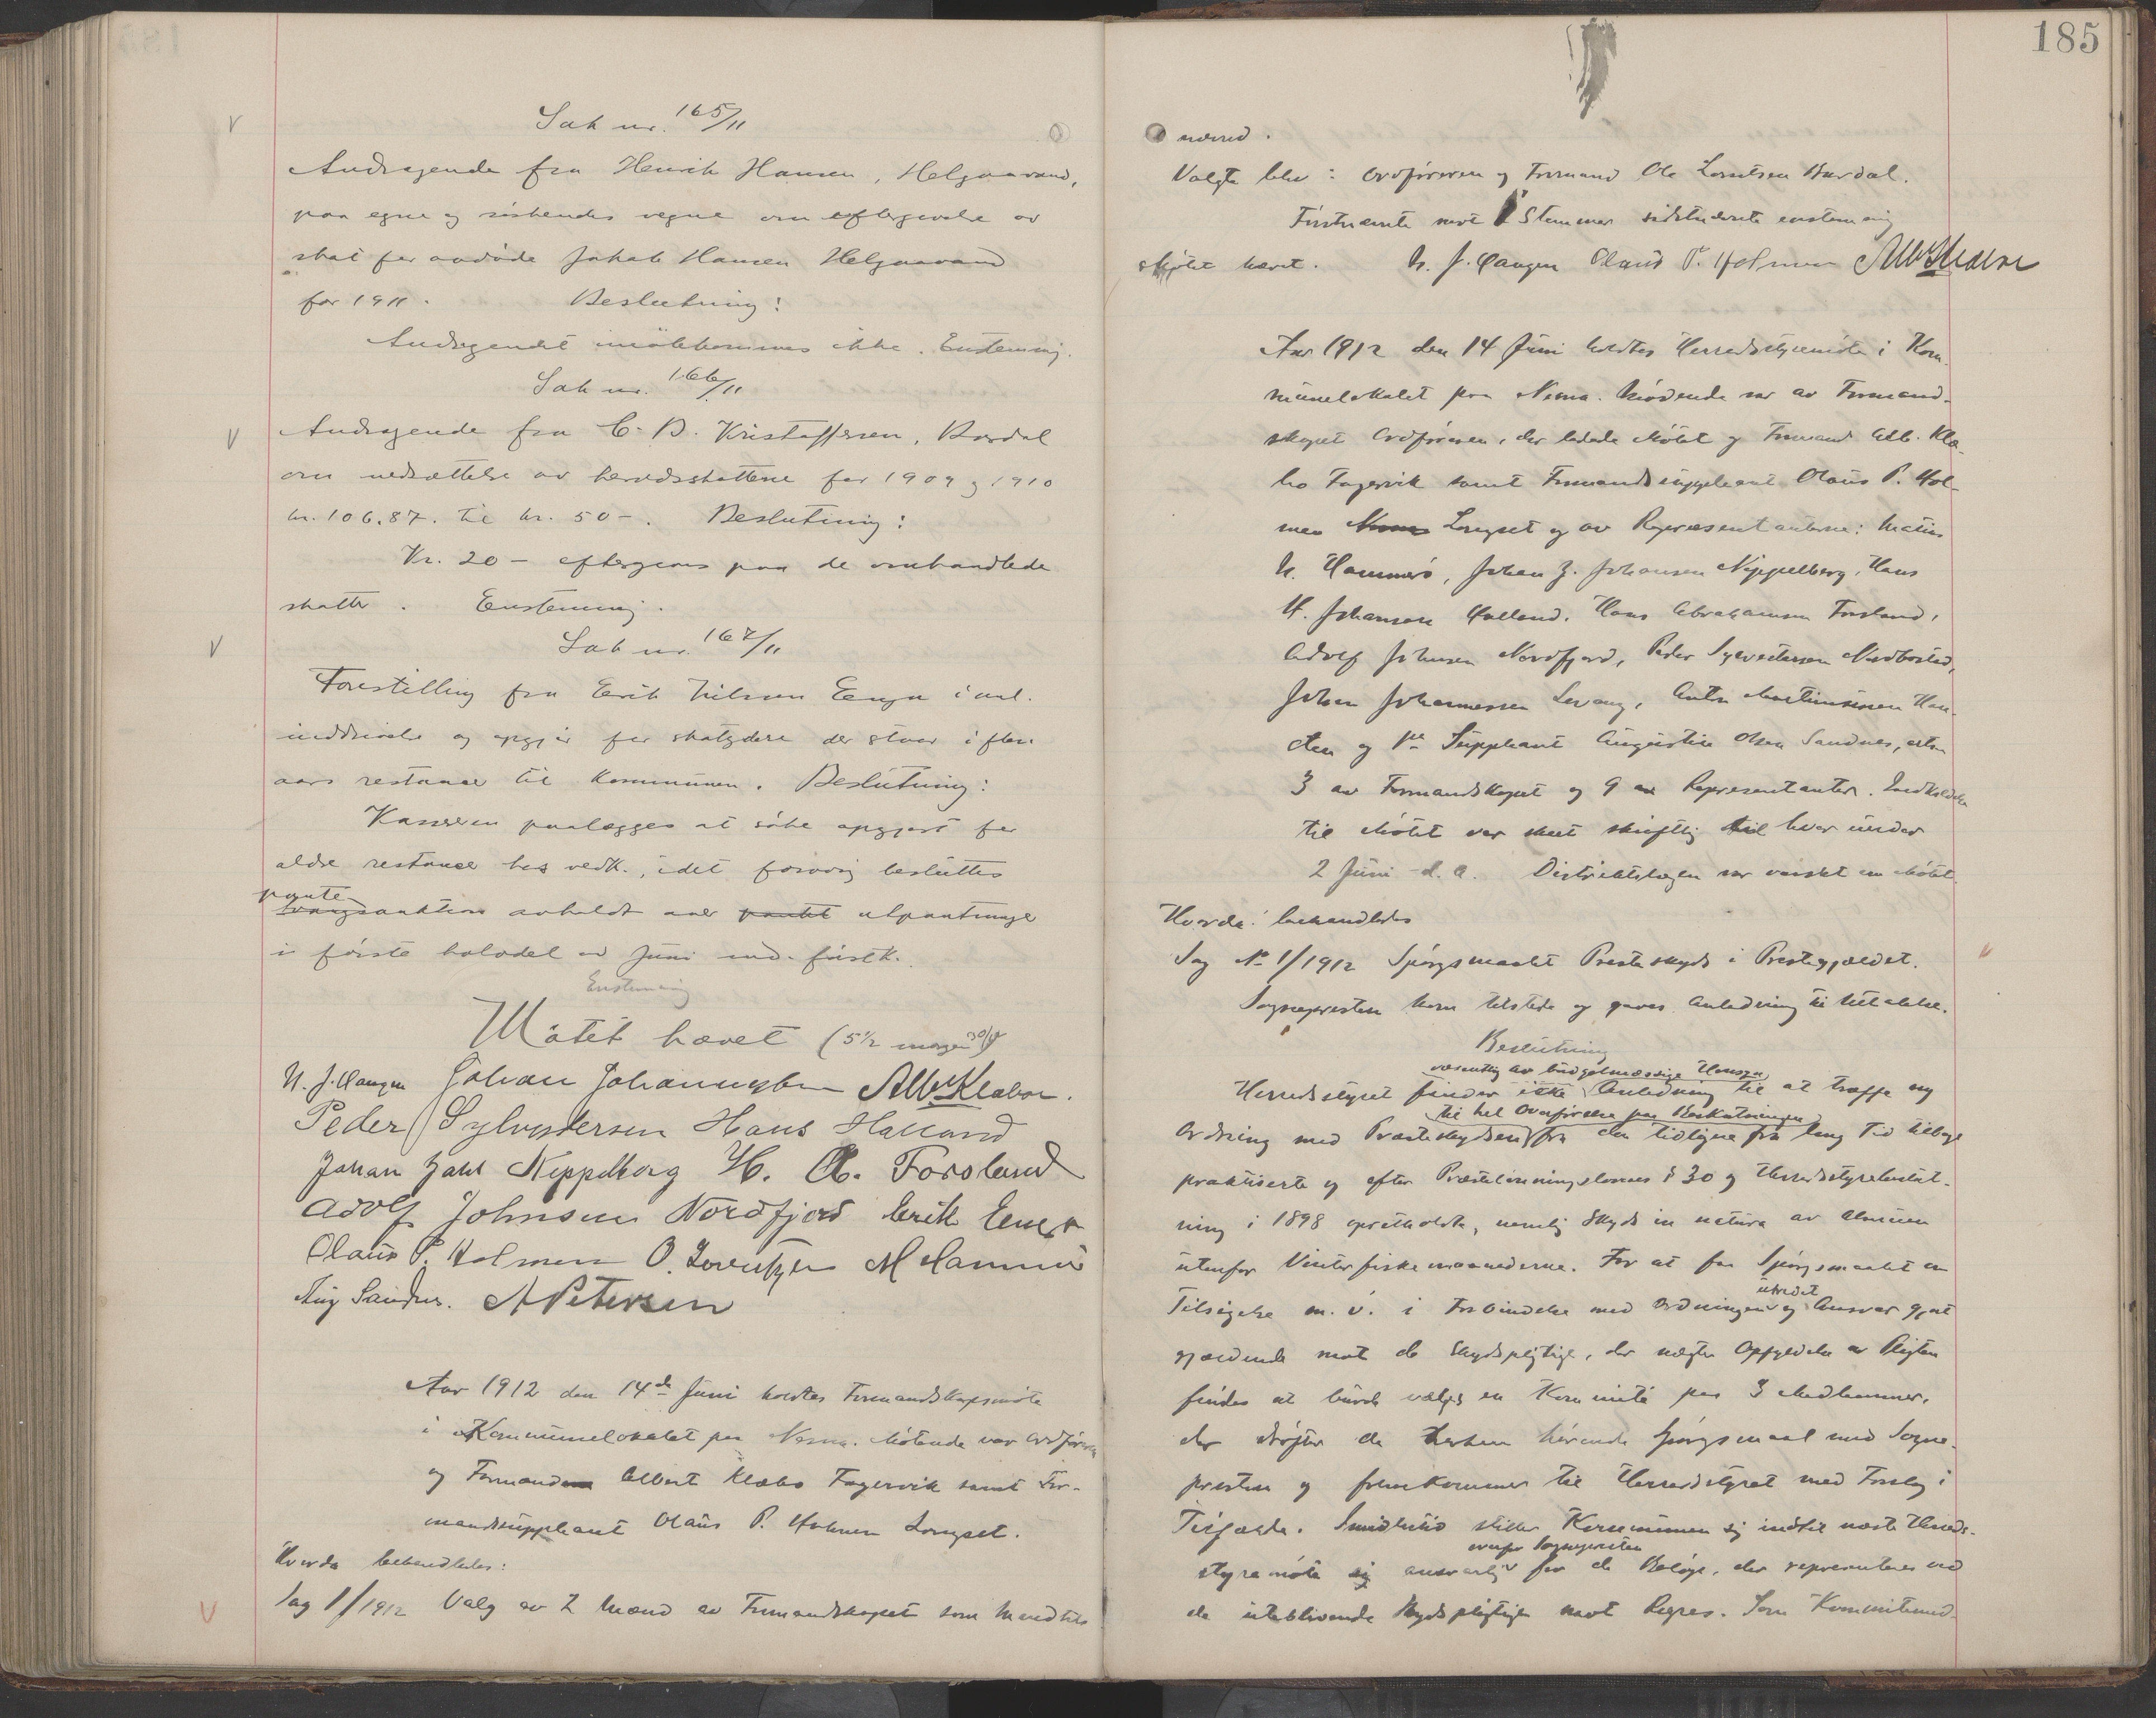 Sak nr. 165/11
Andragende fra Henrik Hansen, Helgaavand,
paa egne og søskendes vegne om eftergivelse av
skat for avdøde Jakob Hansen Helgaavand
for 1911. Beslutning:
Andragendet imøtekommes ikke. Enstemmig.
Sak nr. 166/11
Andragende fra C. D. Kristoffersen, Bardal
om nedsættelse av herredsskattene for 1909 og 1910
kr. 106.87. til kr. 50-. Beslutning:
Kr. 20 - eftergives paa de omhandlede
skatter. Enstemmig.
Sak nr. 167/11
Forestilling fra Erik Nilssen Enga i anl.
inddrivelse og opgjør for skatydere der staar i flere
aars restanse til kommunen. Beslutning:
Kassereren paalægges at søke opgjort for
ældre restanser hos vedk., idet forøvrig besluttes
pante
tvangsauktion avholdt over pantet utpantninger
i første halvdel av Juni md. førstk.
Enstemmig
Møtet hævet (5½ morgen 30/4)
N. J. Vangen Johan Johannessen Alb Klæboe.
Peder Sylvestersen Hans Halland
Johan Zahl Neppelberg H. A. Forsland
Adolf Johnsen Nordfjord Erik Enga
Olaus P. Holmen O. Lorentzen M Hammerø
Aug Sandnes. A Petersen
Aar 1912 den 14de Juni holdtes Formandskapsmøte
i Kommunelokalet paa Nesna. Møtende var Ordføreren
og Formand Albert Klæbo Fagervik samt For-
mandssuppleant Olaus P. Holmen Longset.
Hvorda behandledes:
Sag 1/1912 Valg av 2 Mænd av Formandskapet som
185
nævnd.
Valgte blev: Ordføreren og Formand Ole Lorntsen Bardal.
Førstnævnte mot Stemmer sidstnævnte enstemmig
Møtet hævet. N. J. Vangen Olaus P. Holmen Alb Klæboe
Aar 1912 den 14 Juni holdtes Herredsstyremøte i Kom-
munelokalet paa Nesna. Mødende var av Formand-
skapet Ordføreren, der ledede Møtet og Formand Alb. Klæ-
bo Fagervik samt Formandssuppleant Olaus P. Hol-
men Longset og av Repræsentanterne: Matias
N. Hammerø, Johan Z. Johansen Neppelberg, Hans
H. Johansen Halland, Hans Abrahamsen Forsland,
Adolf Johnsen Nordfjord, Peder Sylvestersen Nordbostad,
Johan Johannessen Levang, Anton Martinussen Han-
dtea og 1ste Suppleant Augustin Olsen Sandnes, altsaa
3 av Formandskapet og 9 Repræsentanter. Indkaldelse
til Møtet var skeet skriftlig til hver under
2 Juni d. A. Distriktslægen var varslet om Møtet.
Hvorda behandledes
Sag No 1/1912 Spørgsmaalet Presteskyds i Prestegjældet.
Sognepresten kom tilstede og gaves Anledning til uttalelse.
Beslutning
væsentlig av budgetmæssige Hensyn
Herredsstyret finder ikke Anledning til at træffe ny
til hel Overførelse paa Beskatningen
Ordning med Presteskydsen fra den tidligere fra lang Tid tilbage
praktiserte og efter Præstelønningslovens § 30 og Herredsstyrebeslut-
ning i 1898 opretholdte, nemlig Skyds in natura av Almuen
utenfor Vinterfiskemaanederne. For at faa Spørgsmaalet om
utredet
Tilsigelse m. v. i Forbindelse med Ordningen og Ansvar gjort
gjældende mot de Skydspligtige, der nægter Opfyldelse av Pligten
findes at burde vælges en Komité paa 3 Medlemmer,
der drøfter de herhen hørende Spørgsmaal med Sogne-
presten og fremkommer til Herredsstyret med Forslag i
Tilfælde. Imidlertid stiller Kommunen sig indtil næste Herreds-
overfor Sognepresten
styremøte sig ansvarlig for de Beløp, der repræsenteres ved
de uteblivende Skydspligtige mot Regres. Som Komitemed-